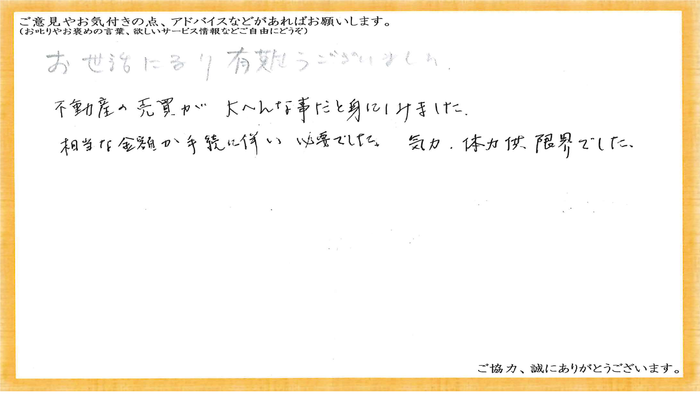 ご意見やお気付きの点、アドバイスなどがあればお願いします。
(お叱りやお褒めの言葉、欲しいサービス情報などご自由にどうぞ)
お世話になり有難うございました.
不動産の売買が 大へんな事だと身にしみました.
相当な金額が手続に伴い 必要でした。 気力. 体力供 限界でした.
ご協力、誠にありがとうございます。